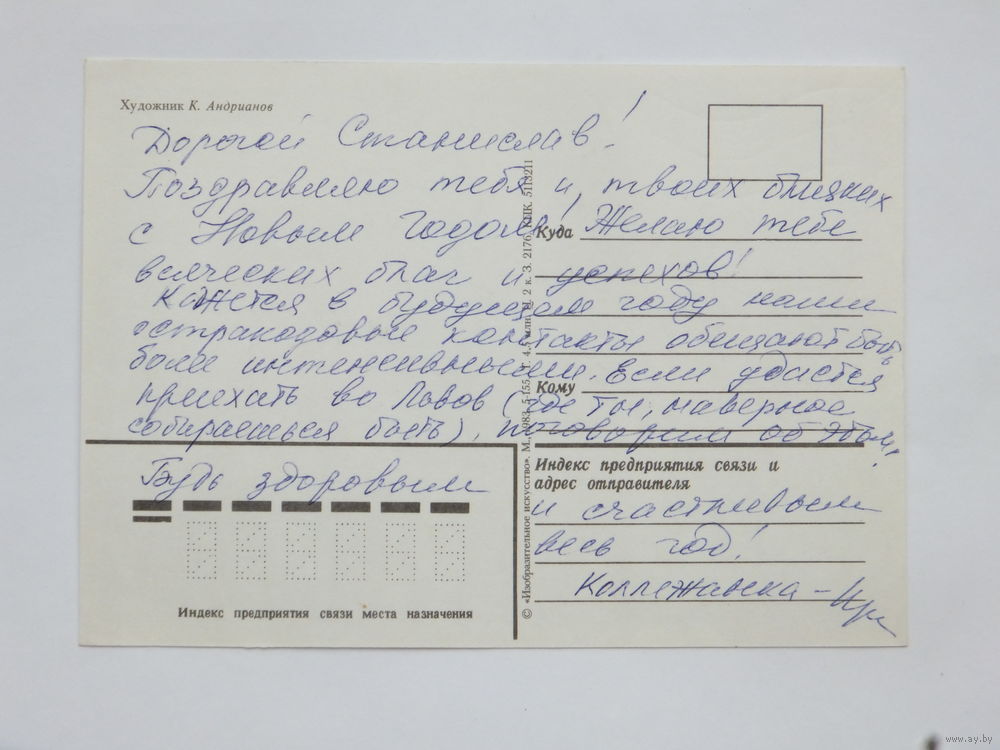 Художник К. Андрианов
Дорогой Станислав!
Поздравляю тебя и твоих близких
с Новым Годом! Желаю тебе
всяческих благ и успехов!
Кажется в будущем году наши
остракодовые контакты обещают быть
более интенсивными. Если удастся
приехать во Львов (где ты, наверное
собираешься быть), поговорим об этом!
Будь здоровым
и счастливым
весь год!
Коллежанка – Ира
Куда
Кому
Индекс предприятия связи и
адрес отправителя
Индекс предприятия связи места назначения
© «Изобразительное искусство». М., 1983. 5-155. Т. 4,5 млн. И. 2 к. З. 2176. КПК. 5113211
www.ay.by